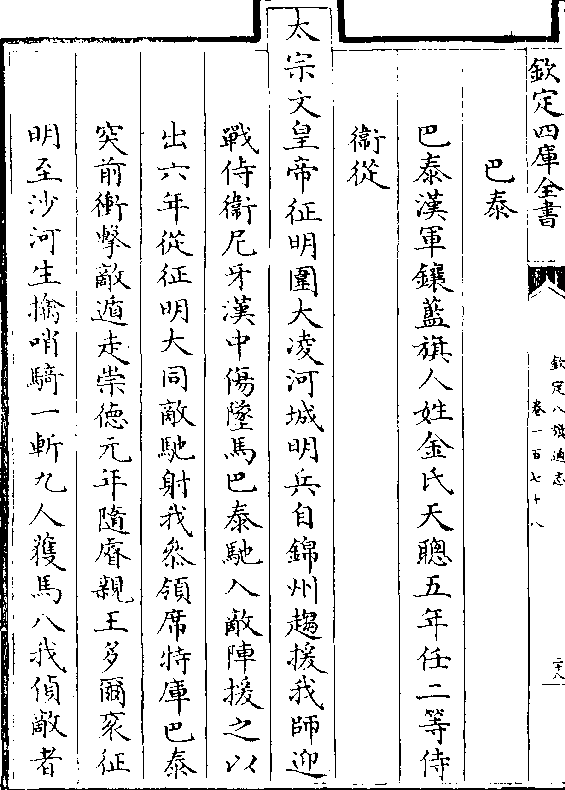 欽定四庫全書
欽定八旗通志
卷一百七十八
二十八
巴泰
巴泰漢軍鑲藍旗人姓金氏天聰五年任二等侍
衛從
太宗文皇帝征明圍大凌河城明兵自錦州趨援我師迎
戰侍衛尼牙漢中傷墜馬巴泰馳入敵陣援之以
出六年從征明大同敵馳射我叅領席特庫巴泰
突前衝擊敵遁走崇德元年隨睿親王多爾衮征
明至沙河生擒哨騎一斬九人獲馬八我偵敵者